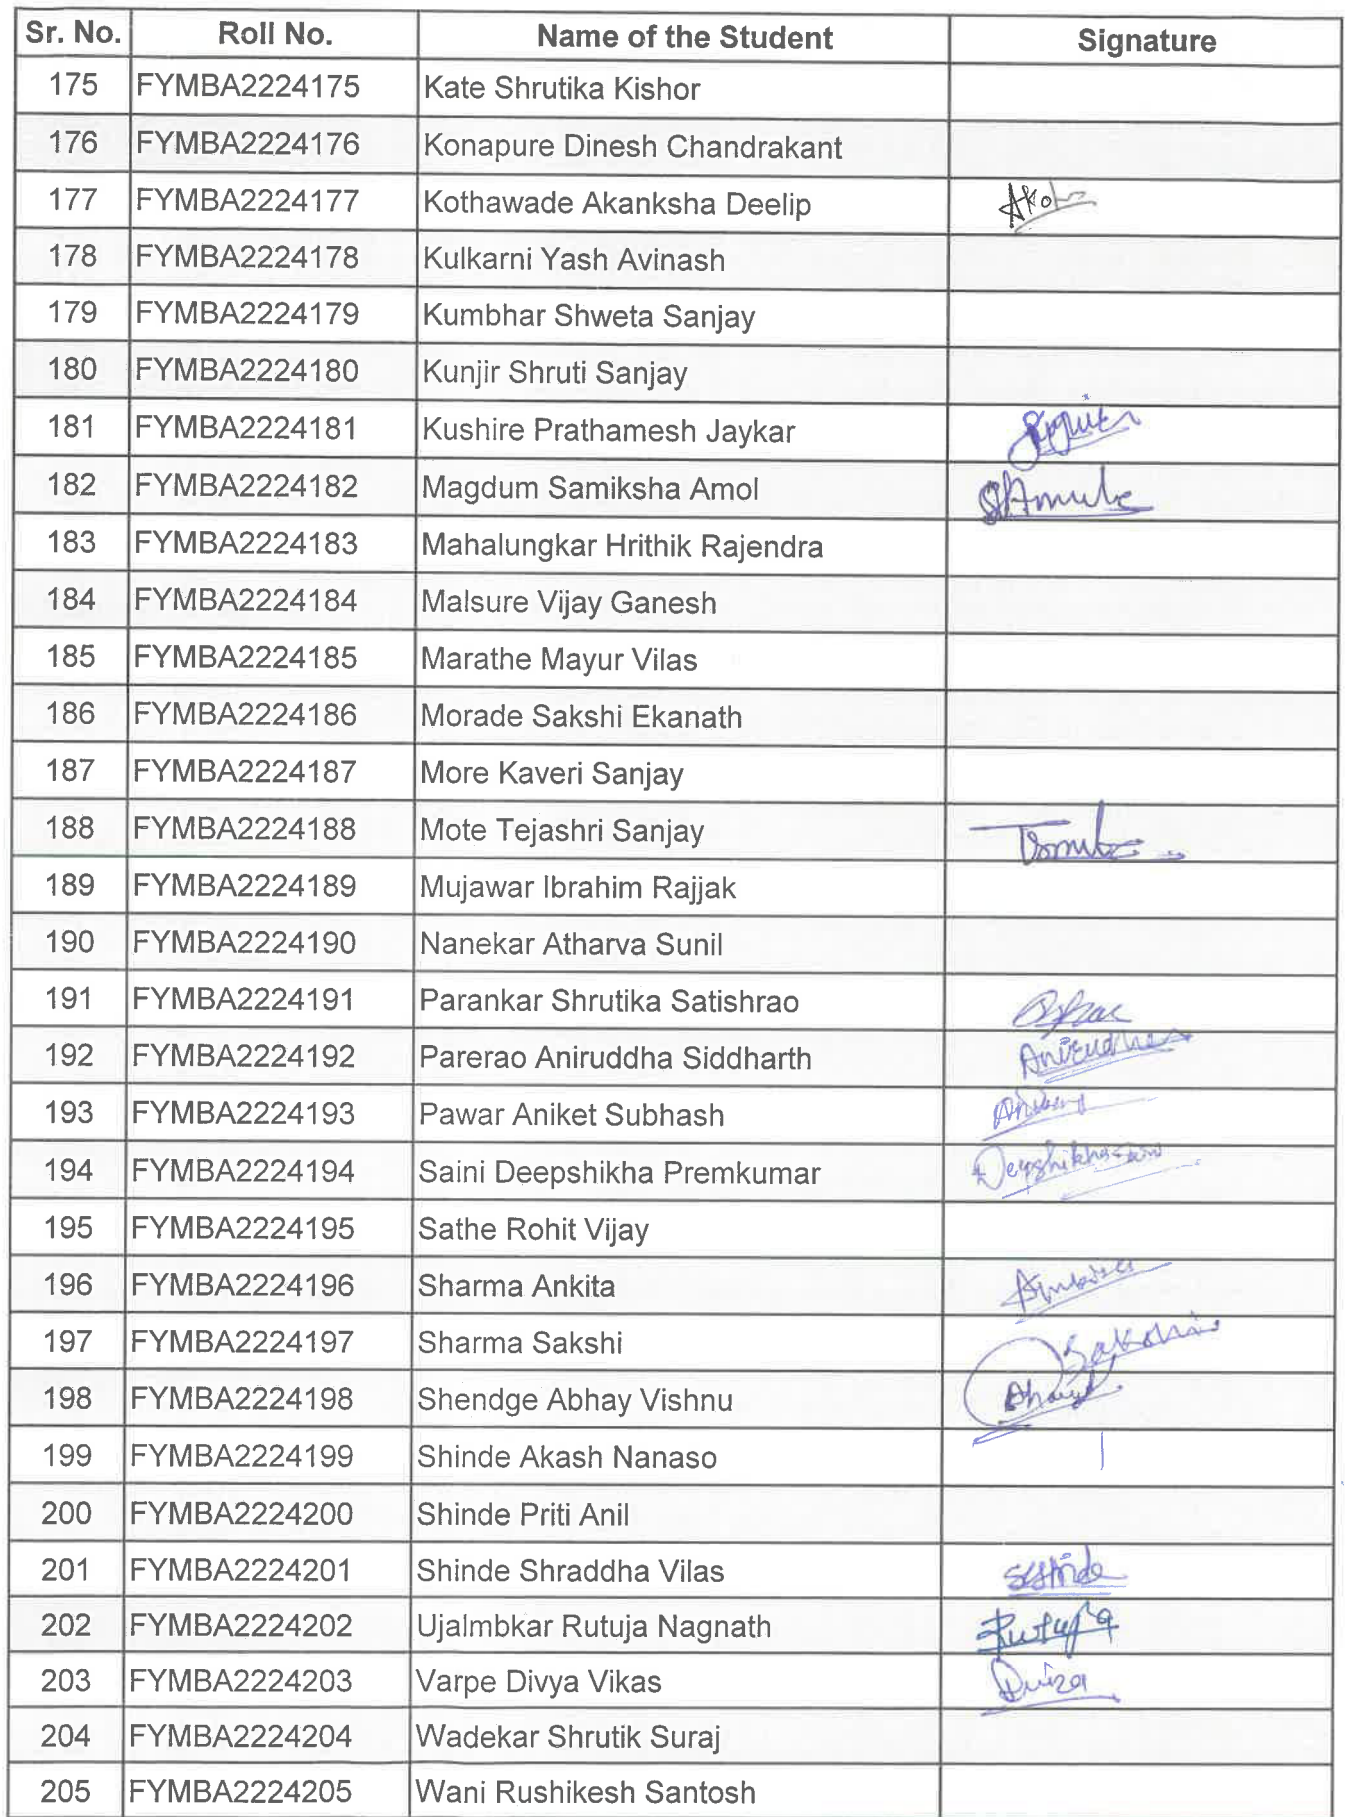 Sr. No. Roll No. Name of the Student Signature
175 FYMBA2224175 Kate Shrutika Kishor
176 FYMBA2224176 Konapure Dinesh Chandrakant
177 FYMBA2224177 Kothawade Akanksha Deelip
178 FYMBA2224178 Kulkarni Yash Avinash
179 FYMBA2224179 Kumbhar Shweta Sanjay
180 FYMBA2224180 Kunjir Shruti Sanjay
181 FYMBA2224181 Kushire Prathamesh Jaykar
182 FYMBA2224182 Magdum Samiksha Amol
183 FYMBA2224183 Mahalungkar Hrithik Rajendra
184 FYMBA2224184 Malsure Vijay Ganesh
185 FYMBA2224185 Marathe Mayur Vilas
186 FYMBA2224186 Morade Sakshi Ekanath
187 FYMBA2224187 More Kaveri Sanjay
188 FYMBA2224188 Mote Tejashri Sanjay
189 FYMBA2224189 Mujawar Ibrahim Rajjak
190 FYMBA2224190 Nanekar Atharva Sunil
191 FYMBA2224191 Parankar Shrutika Satishrao
192 FYMBA2224192 Parerao Aniruddha Siddharth
193 FYMBA2224193 Pawar Aniket Subhash
194 FYMBA2224194 Saini Deepshikha Premkumar
195 FYMBA2224195 Sathe Rohit Vijay
196 FYMBA2224196 Sharma Ankita
197 FYMBA2224197 Sharma Sakshi Sakshi
198 FYMBA2224198 Shendge Abhay Vishnu
199 FYMBA2224199 Shinde Akash Nanaso
200 FYMBA2224200 Shinde Priti Anil
201 FYMBA2224201 Shinde Shraddha Vilas
202 FYMBA2224202 Ujalmbkar Rutuja Nagnath Rutuja
203 FYMBA2224203 Varpe Divya Vikas
204 FYMBA2224204 Wadekar Shrutik Suraj
205 FYMBA2224205 Wani Rushikesh Santosh